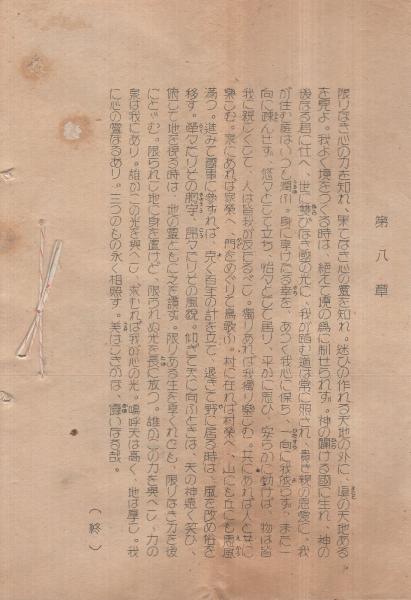 第八章
限りなき心の力を知れ、果てなき心の靈を知れ。迷ひの作れる天地の外に、眞の天地ある
を見よ。我よく境をつくる時は、絕えて境の爲に制せられず。神の開ける國に生れ、神の
後なる君に仕へ、世に雙びなき國の光に、我が踏む道は常に照され、貴き親の恩愛に、我
が住む居はいつも潤ふ。身に享けたる幸を、あつく我心に保ち、一向に我侮らず、また一
向に疎んせず。悠々として立ち、怡々として居り、平かに思ひ、安らかに動けば、物は皆
我に親しくして、人は皆我が友たるべし。獨りあれば我獨り樂しむ。共にあれば人と共に
樂しむ。家にあれば家榮へ、門をめぐりて鳥歌ふ。村に在れば村榮へ、山にも丘にも惠風
滿つ。進みて書事に參ずれば、克く百年の計を立て、退きて野に居る時は、風を改め俗を
移す。堂々たりその威容、昂々たりその風貌。仰ぎて天に向ふときは、天の神遠く笑ひ、
俯して地を視る時は、地の靈ともに之を讃す。限りある生を享くれども、限りなき力を後
にとゞむ。限られし地に身を置けど、限られぬ光を長に放つ。誰かこの力を與へし、力の
泉は我にあり。誰かこの光を與へし、求むれば我が心の光。嗚呼天は高く、地は厚し。我
に心の靈なるあり。三つのもの永く相照す。美はしきかな、偉いなる哉。
（終）